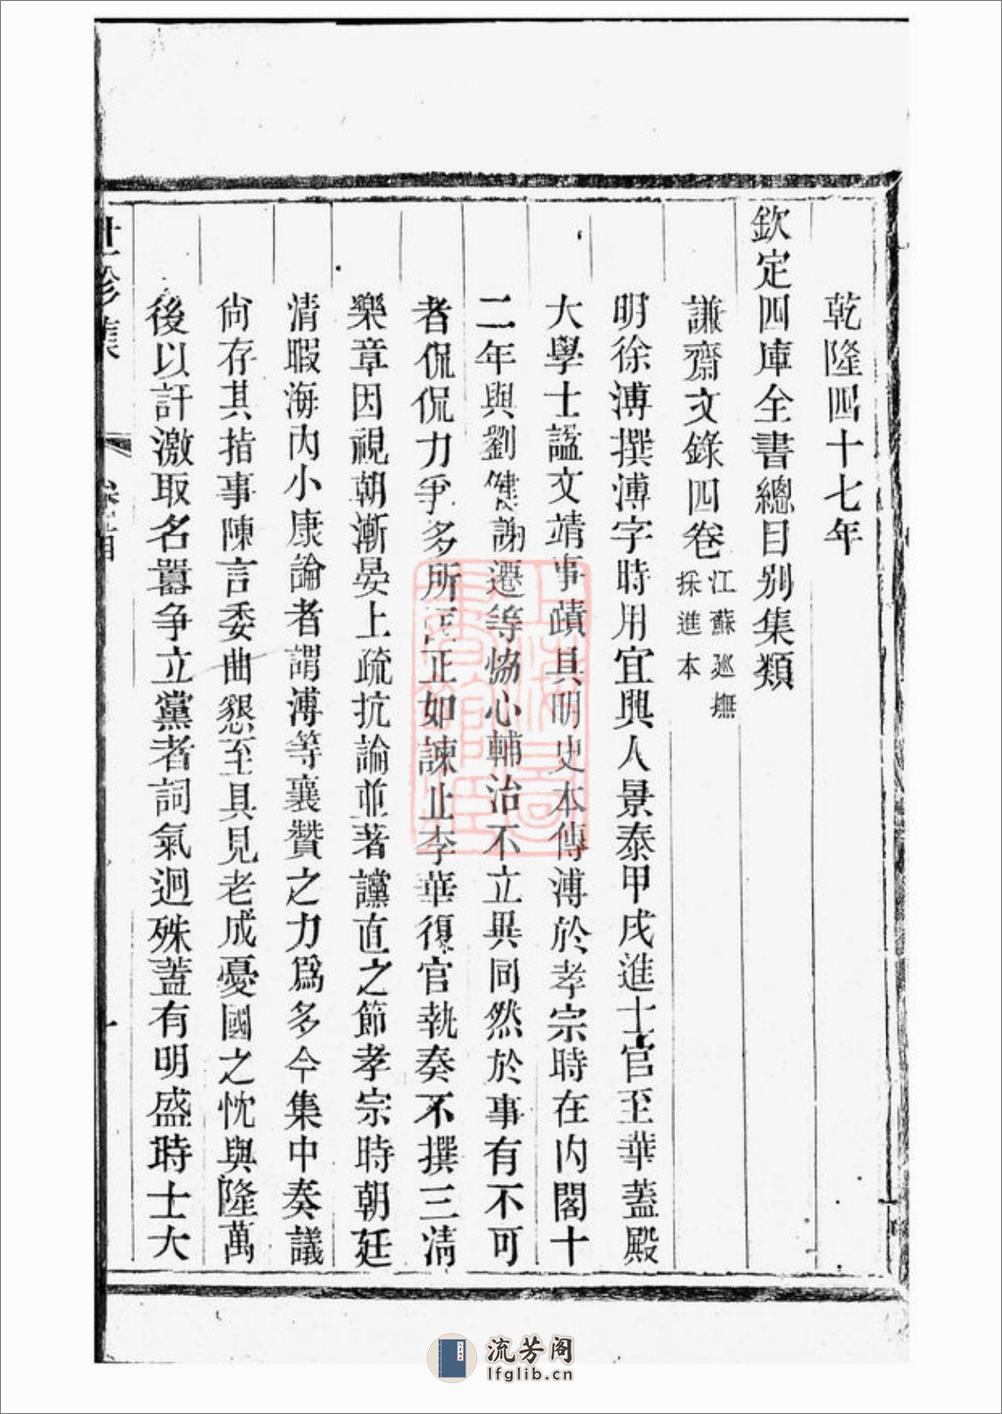 乾隆四十七年
欽定四庫全書總目別集類
謙齋文錄四卷
江蘇巡撫
採進本
明徐溥撰溥字時用宜興人景泰甲戌進士官至華蓋殿
大學士諡文靖事蹟具明史本傳溥於孝宗時在內閣十
二年與劉健謝遷等恊心輔治不立異同然於事有不可
者侃侃力爭多所匡正如諫止李華復官執奏不撰三清
樂章因視朝漸晏上疏抗論並著讜直之節孝宗時朝廷
清暇海內小康論者謂溥等襄贊之力爲多今集中奏議
尙存其指事陳言委曲懇至具見老成憂國之忱與隆萬
後以訐激取名囂争立黨者詞氣迥殊蓋有明盛時士大
流芳阁
lfglib.cn